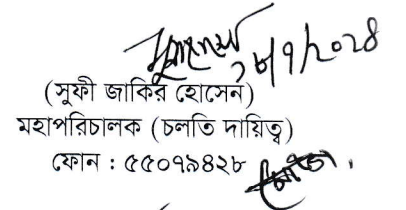 ২৮/৭/২০২৪
(সুফী জাকির হোসেন)
মহাপরিচালক (চলতি দায়িত্ব)
ফোন : ৫৫০৭৯৪২৮